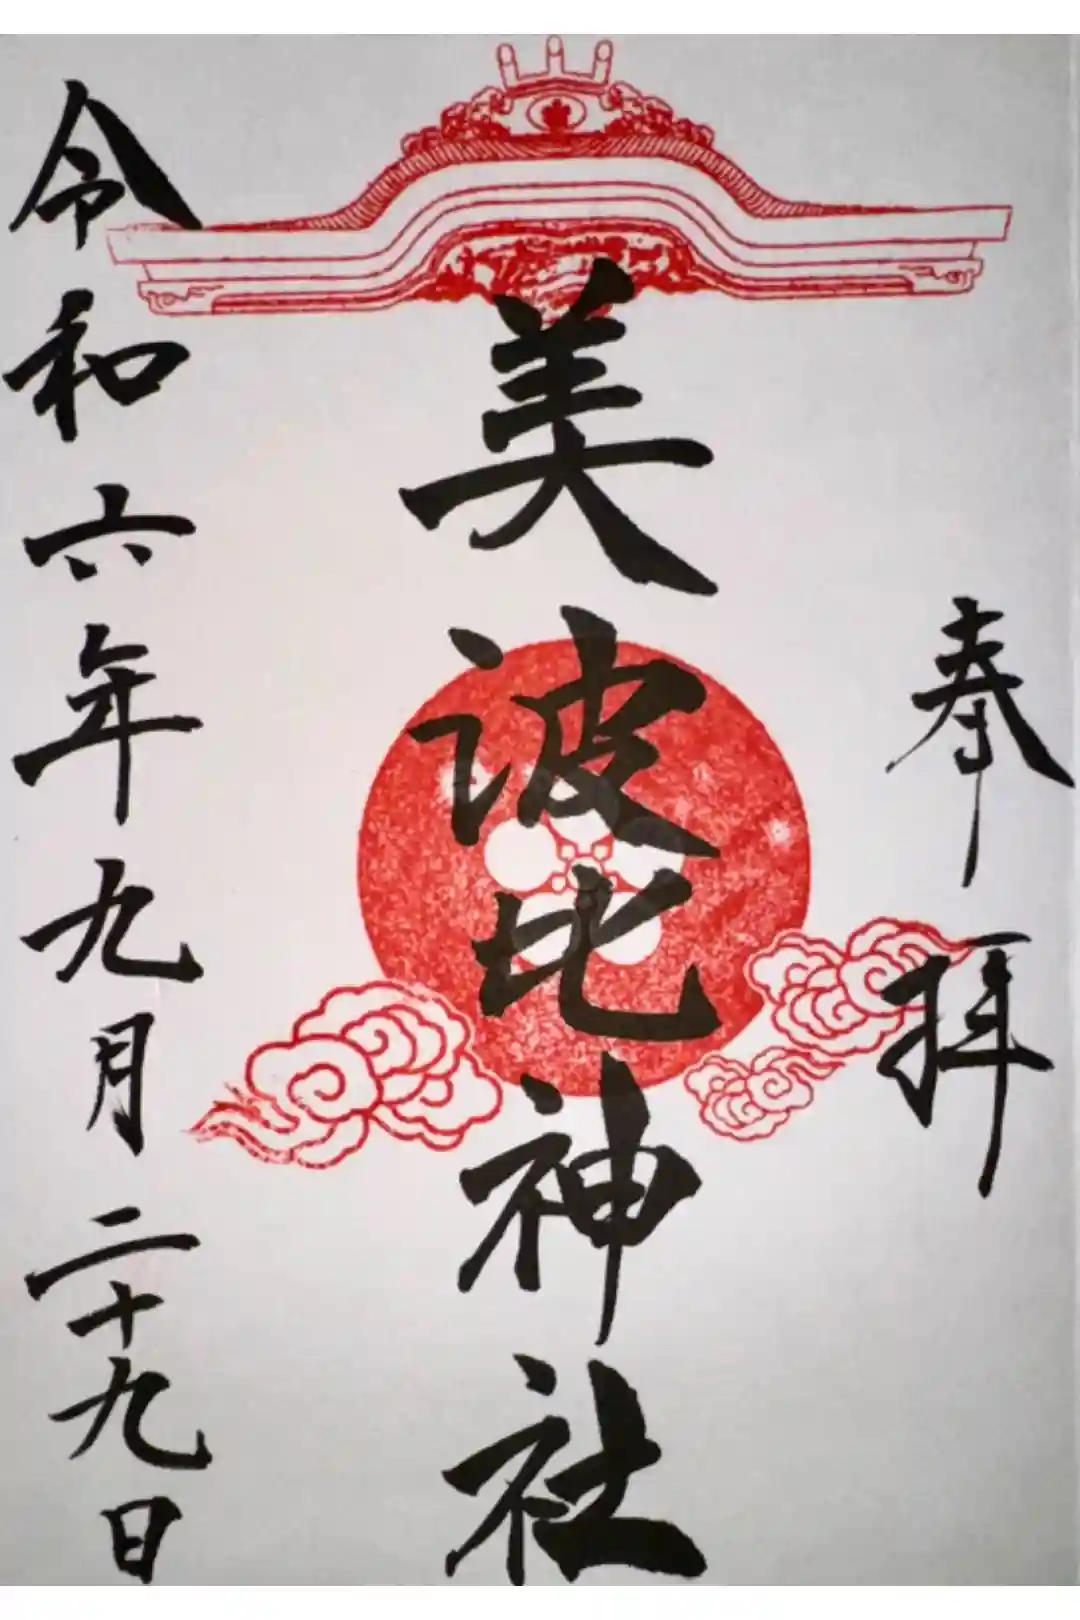 奉拝
美波比神社
令和六年九月二十九日